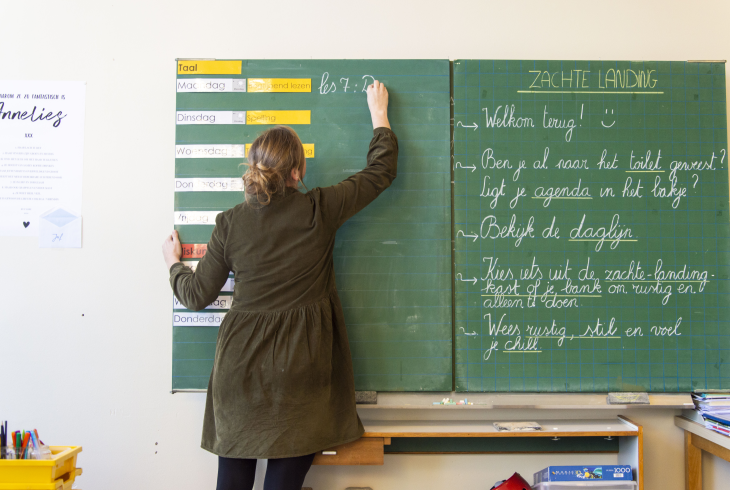 Annelies
xxx
Taal
Maandag
lezen
les 7: D
Dinsdag
Spelling
Donderdag
Donderdag
ZACHTE LANDING
Welkom terug!
Ben je al naar het toilet geweest?
Ligt je agenda in het bakje?
Bekijk de daglijn.
Kies iets uit de zachte-landing-
kast of je bank om rustig en
alleen te doen.
Wees rustig, stil en voel
je chill.
1000